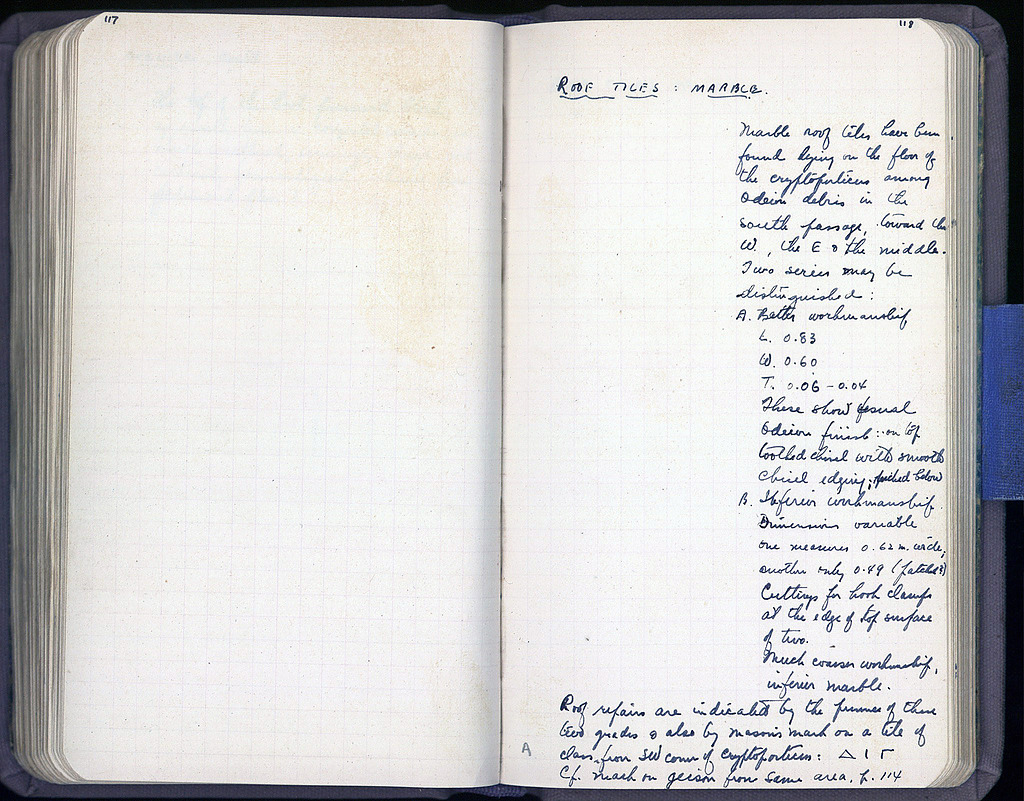 117
118
ROOF TILES : MARBLE.
Marble roof tiles have been
found lying on the floor of
the cryptoporticus among
Odeion debris in the
south passage, toward the
W., the E & the middle.
Two series may be
distinguished :
A. Better workmanship
L. 0.83
W. 0.60
T. 0.06 - 0.04
These show usual
Odeion finish : on top
toothed chisel with smooth
chisel edging; picked below
B. Inferior workmanship.
Dimensions variable
one measures 0.62 m. wide,
another only 0.49 (patched?)
Cuttings for hook clamps
at the edge of top surface
of two.
Much coarser workmanship,
inferior marble.
Roof repairs are indicated by the presence of these
two grades & also by mason's mark on a tile of
A
class from SW corner of cryptoporticus : Δ Ι Γ
Cf. mark on geison from same area, p. 114